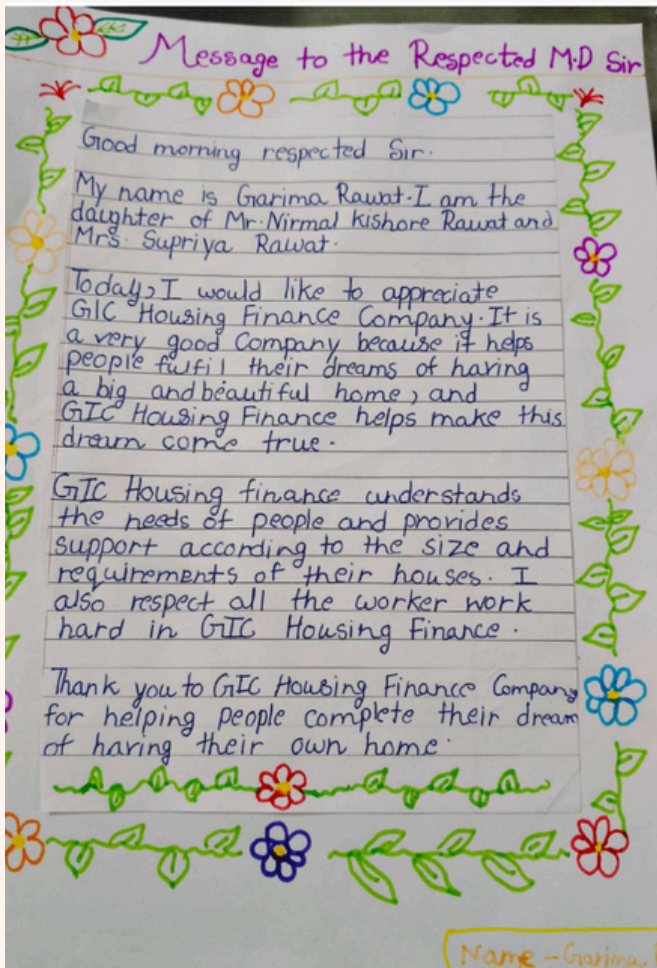 Message to the Respected M.D Sir
Good morning respected Sir.
My name is Garima Rawat. I am the
daughter of Mr. Nirmal Kishore Rawat and
Mrs. Supriya Rawat.
Today, I would like to appreciate
GIC Housing Finance Company. It is
a very good Company because it helps
people fulfil their dreams of having
a big and beautiful home, and
GIC Housing Finance helps make this
dream come true.
GIC Housing finance understands
the needs of people and provides
support according to the size and
requirements of their houses. I
also respect all the worker work
hard in GIC Housing Finance.
Thank you to GIC Housing Finance Company
for helping people complete their dream
of having their own home.
Name - Garima